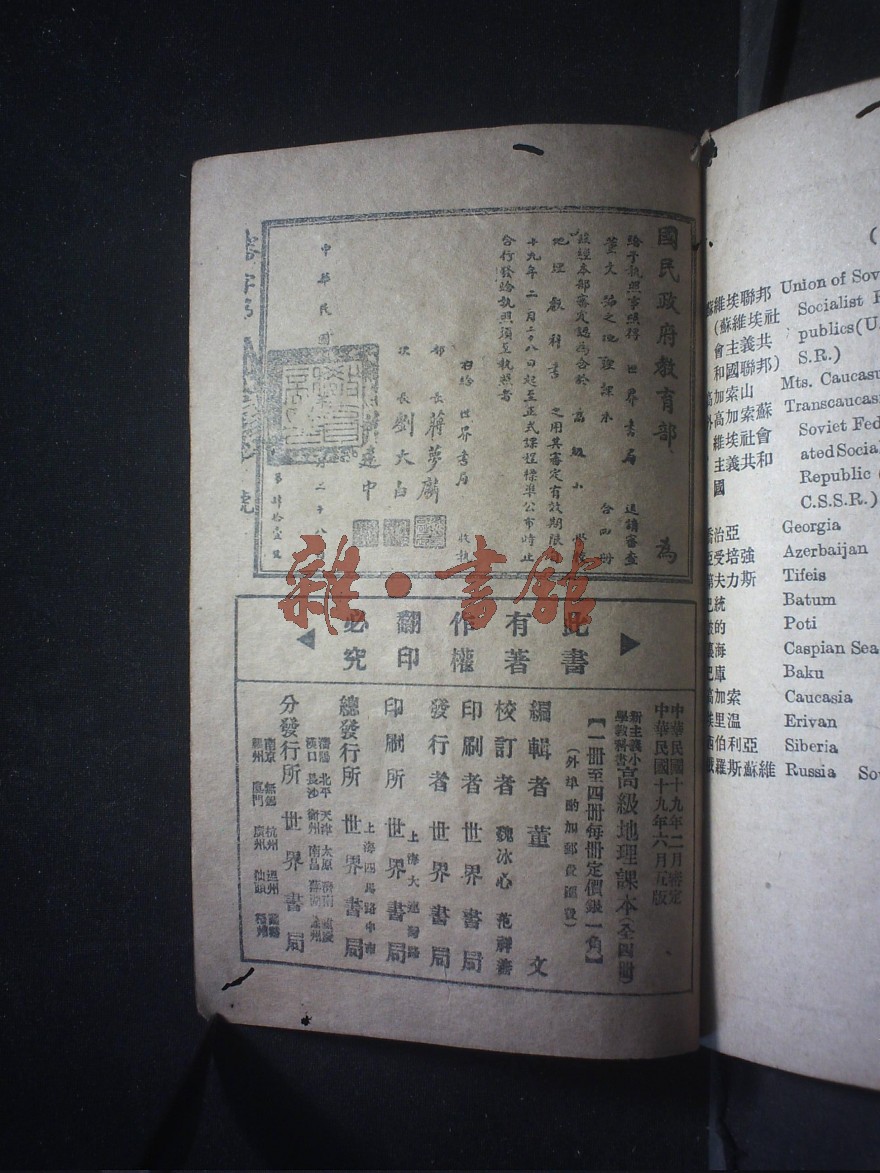 國民政府教育部 為
給予執照事照得 世界書局 送請審查
董文編之地理課本 合四冊
該經本部審定認為合於 高級小學校
地理教科書 之用其審定有效期限自
十九年二月二十八日起至正式課程標準公布時止
合行發給執照須至執照者
右給世界書局 收執
部長蔣夢麟
次長劉大白
中華民國
雜·書館
此書
有著
作權
翻印
必究
中華民國十九年二月審定
中華民國十九年六月五版
新主義小學教科書 高級地理課本(全四冊)
【一冊至四冊每冊定價銀一角】
(外埠酌加郵費匯費)
編輯者 董文
校訂者 魏冰心 范祥善
印刷者 世界書局
發行者 世界書局
印刷所 上海大連灣路 世界書局
總發行所 上海四馬路中市 世界書局
分發行所 世界書局
瀋陽 北平 天津 太原 濟南
漢口 長沙 衡州 南昌 蕪湖 徐州
南京 無錫 杭州 溫州
蘇州 廈門 廣州 汕頭
蘇維埃聯邦 Union of Sov
(蘇維埃社 Socialist R
會主義共 publics(U.
和國聯邦) S.R.)
高加索山 Mts. Caucasu
外高加索蘇 Transcaucas
維埃社會 Soviet Fed
主義共和 ated Social
國 Republic (
C.S.S.R.)
喬治亞 Georgia
亞受培強 Azerbaijan
第夫力斯 Tifeis
巴統 Batum
波的 Poti
裏海 Caspian Sea
巴庫 Baku
高加索 Caucasia
埃里溫 Erivan
西伯利亞 Siberia
俄羅斯蘇維 Russia Sov